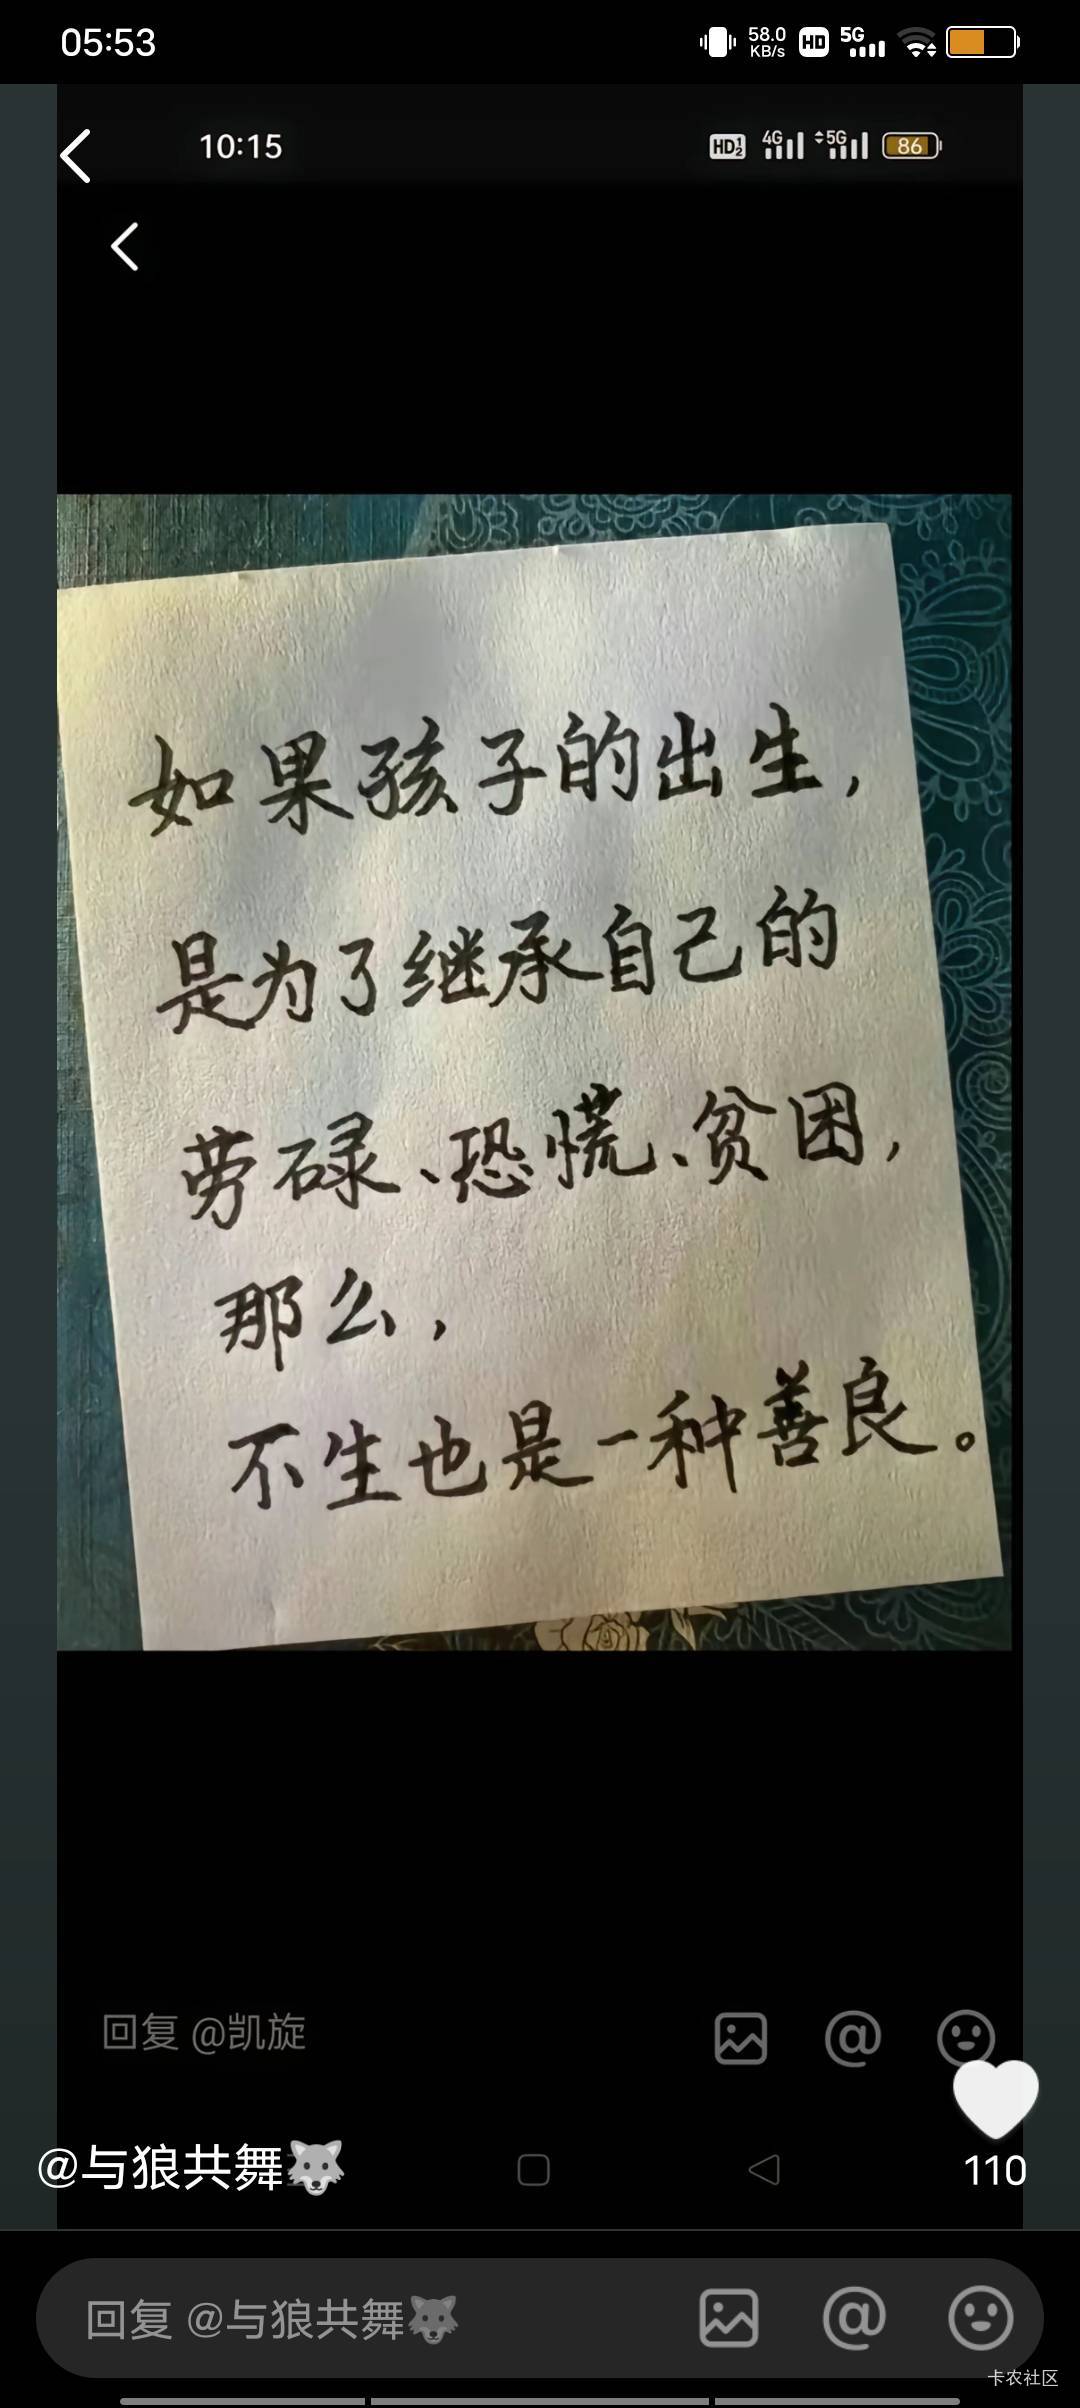 05:53
58.0 KB/s HD 5G
10:15
HD 1 2 4G 5G 86
如果孩子的出生，
是为了继承自己的
劳碌、恐慌、贫困，
那么，
不生也是一种善良。
回复 @凯旋
@与狼共舞🐺
110
回复 @与狼共舞🐺
卡农社区